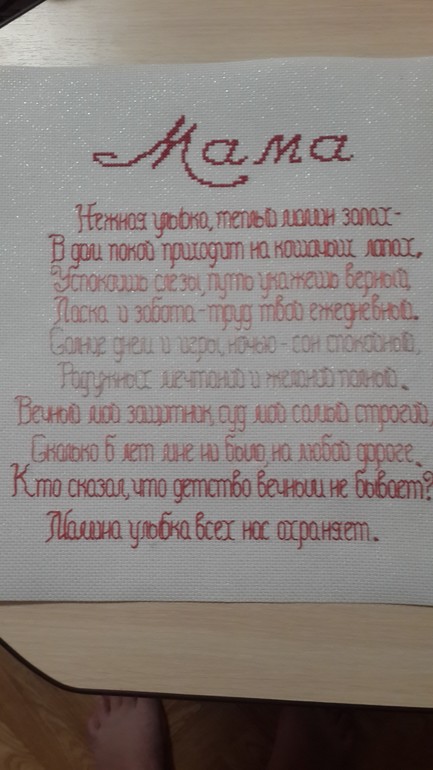 Мама
Нежная улыбка, теплый мамин запах-
В дом покой приходит на кошачьих лапах,
Успокоишь слезы, путь укажешь верный,
Ласка и забота-труд твой ежедневный.
Солнце днем и игры, ночью-сон спокойный,
Радужных мечтаний и желаний полный.
Вечный мой защитник, суд мой самый строгий,
Сколько б лет мне ни было, на любой дороге.
Кто сказал, что детство вечным не бывает?
Мамина улыбка всех нас охраняет.